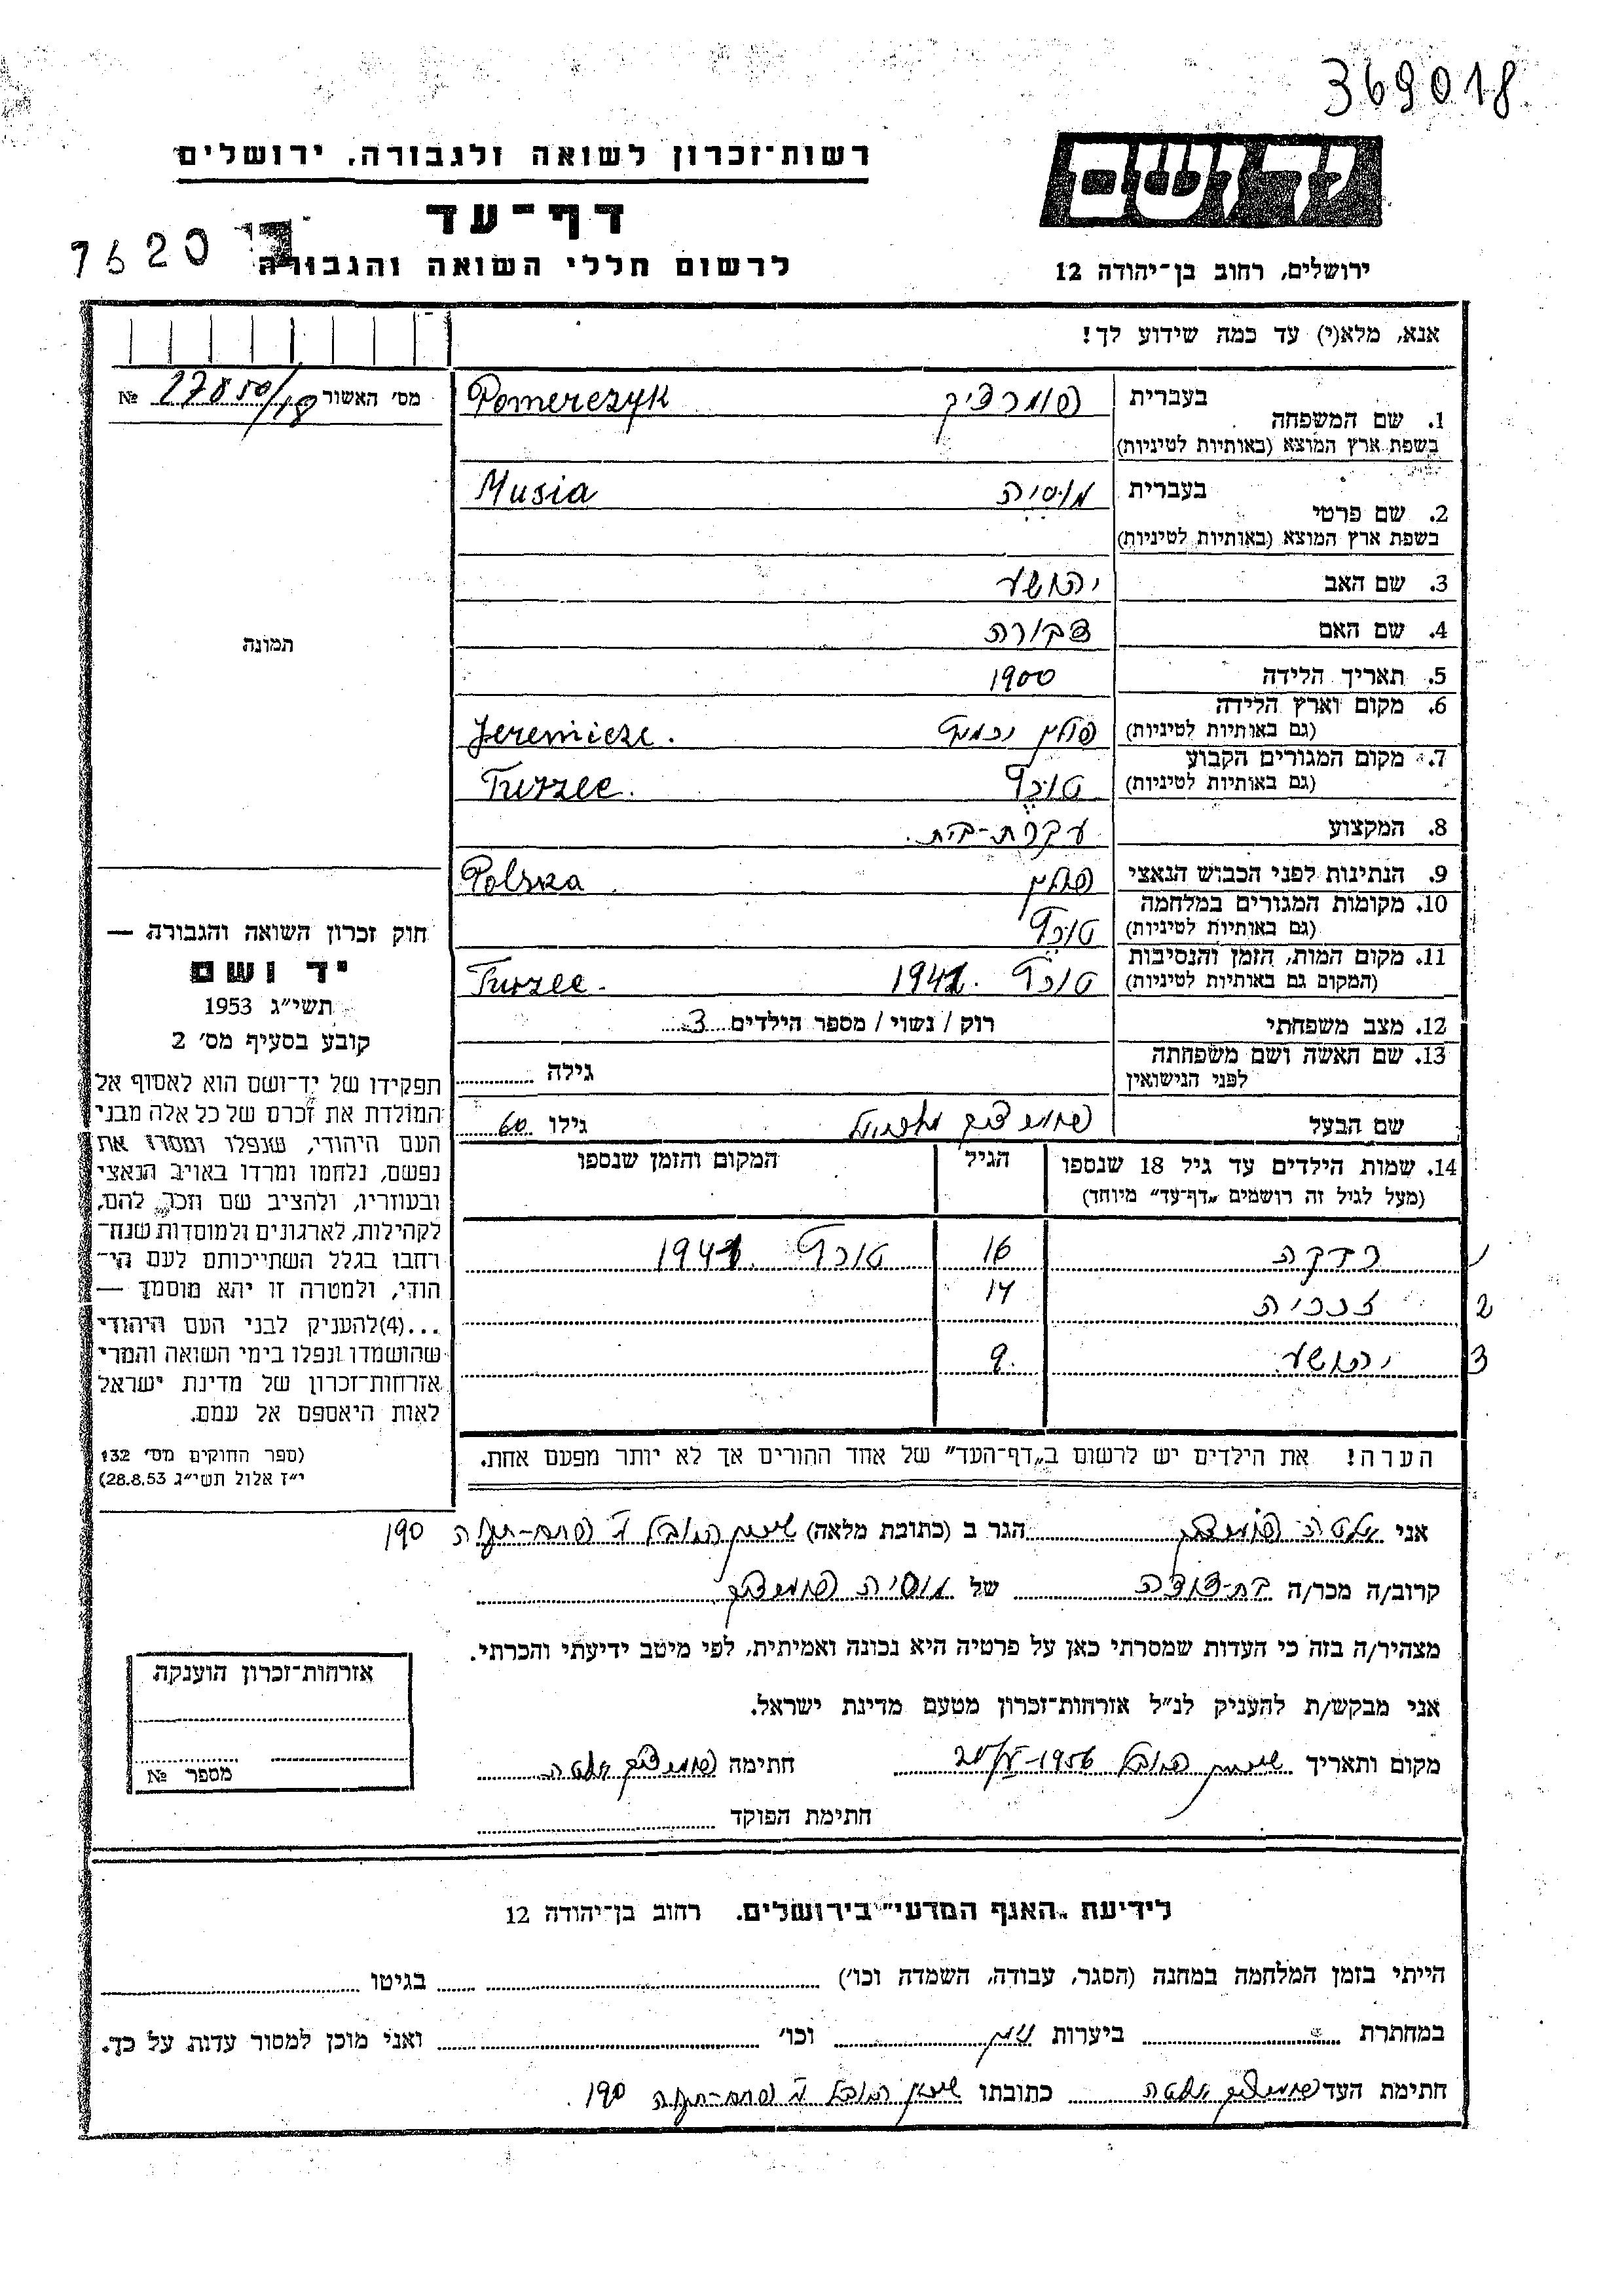 369018
יד ושם
רשות־זכרון לשואה ולגבורה, ירושלים
דף־עד
לרשום חללי השואה והגבורה
7620
ירושלים, רחוב בן־יהודה 12
אנא, מלא(י) עד כמה שידוע לך!
מס׳ האשור № 27850/18
1. שם המשפחה
בעברית
פומרציק Pomerczyk
בשפת ארץ המוצא (באותיות לטיניות)
2. שם פרטי
בעברית
מוסיה Musia
בשפת ארץ המוצא (באותיות לטיניות)
3. שם האב יהושע
4. שם האם
5. תאריך הלידה 1900
6. מקום וארץ הלידה
(גם באותיות לטיניות) פולין Jeremicze.
7. מקום המגורים הקבוע
(גם באותיות לטיניות) טורץ Turzec.
8. המקצוע עקרת-בית.
9. הנתינות לפני הכבוש הנאצי פולין Polska
10. מקומות המגורים במלחמה
(גם באותיות לטיניות) טורץ
11. מקום המות, הזמן והנסיבות
(המקום גם באותיות לטיניות) טורץ 1941. Turzec.
12. מצב משפחתי רוק / נשוי / מספר הילדים 3
13. שם האשה ושם משפחתה
לפני הנישואין
גילה
שם הבעל פומרציק גילו 60
14. שמות הילדים עד גיל 18 שנספו
(מעל לגיל זה רושמים „דף־עד” מיוחד)
הגיל
המקום והזמן שנספו
1 רבקה 16 טורץ 1941
2 14
3 יהושע 9.
הערה! את הילדים יש לרשום ב„דף־העד” של אחד ההורים אך לא יותר מפעם אחת.
תמונה
חוק זכרון השואה והגבורה —
יד ושם
תשי״ג 1953
קובע בסעיף מס׳ 2
תפקידו של יד־ושם הוא לאסוף אל
המולדת את זכרם של כל אלה מבני
העם היהודי, שנפלו ומסרו את
נפשם, נלחמו ומרדו באויב הנאצי
ובעוזריו, ולהציב שם וזכר להם,
לקהילות, לארגונים ולמוסדות שנח־
רחבו בגלל השתייכותם לעם הי־
הודי, ולמטרה זו יהא מוסמך —
...(4)להעניק לבני העם היהודי
שהושמדו ונפלו בימי השואה והמרי
אזרחות־זכרון של מדינת ישראל
לאות היאספם אל עמם.
(ספר החוקים מס׳ 132
י״ז אלול תשי״ג 28.8.53)
אני פומרציק הגר ב (כתובת מלאה) שיכון פתח-תקוה 190
קרוב/ה מכר/ה בת-דודה של מוסיה פומרציק
מצהיר/ה בזה כי העדות שמסרתי כאן על פרטיה היא נכונה ואמיתית, לפי מיטב ידיעתי והכרתי.
אני מבקש/ת להעניק לנ״ל אזרחות־זכרון מטעם מדינת ישראל.
מקום ותאריך שיכון 1956 חתימה פומרציק
חתימת הפוקד
אזרחות־זכרון הוענקה
מספר №
לידיעת „האגף המדעי” בירושלים. רחוב בן־יהודה 12
הייתי בזמן המלחמה במחנה (הסגר, עבודה, השמדה וכו׳) בגיטו
במחתרת ביערות וכו׳ ואני מוכן למסור עדות על כך.
חתימת העד פומרציק כתובתו שיכון פתח-תקוה 190.